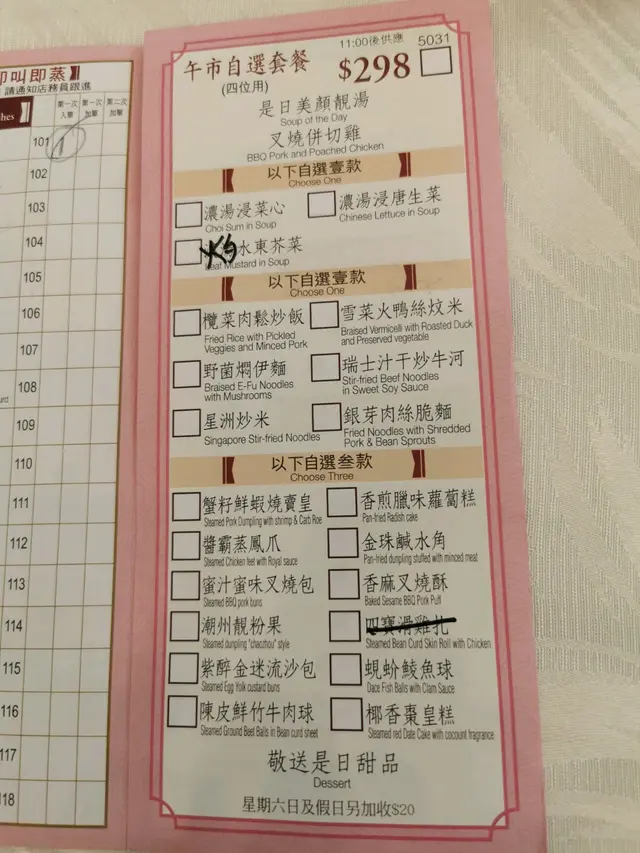 即叫即蒸
請通知店務員跟進
hes
第一次
入單
第一次
加單
第二次
加單
101
102
103
104
105
106
107
108
109
110
111
112
113
114
115
116
117
118
11:00後供應 5031
午市自選套餐 $298
(四位用)
是日美顏靚湯
Soup of the Day
叉燒併切雞
BBQ Pork and Poached Chicken
以下自選壹款
Choose One
濃湯浸菜心
Choi Sum in Soup
濃湯浸唐生菜
Chinese Lettuce in Soup
水東芥菜
Leaf Mustard in Soup
以下自選壹款
Choose One
欖菜肉鬆炒飯
Fried Rice with Pickled
Veggies and Minced Pork
雪菜火鴨絲炆米
Braised Vermicelli with Roasted Duck
and Preserved vegetable
野菌燜伊麵
Braised E-Fu Noodles
with Mushrooms
瑞士汁干炒牛河
Stir-fried Beef Noodles
in Sweet Soy Sauce
星洲炒米
Singapore Stir-fried Noodles
銀芽肉絲脆麵
Fried Noodles with Shredded
Pork & Bean Sprouts
以下自選叁款
Choose Three
蟹籽鮮蝦燒賣皇
Steamed Pork Dumpling with shrimp & Carb Roe
香煎臘味蘿蔔糕
Pan-fried Radish cake
醬霸蒸鳳爪
Steamed Chicken feet with Royal sauce
金珠鹹水角
Pan-fried dumpling stuffed with minced meat
蜜汁蜜味叉燒包
Steamed BBQ pork buns
香麻叉燒酥
Baked Sesame BBQ Pork Puff
潮州靚粉果
Steamed dumpling "chaozhou" style
四寶滑雞扎
Steamed Bean Curd Skin Roll with Chicken
紫醉金迷流沙包
Steamed Egg Yolk custard buns
蜆蚧鯪魚球
Dace Fish Balls with Clam Sauce
陳皮鮮竹牛肉球
Steamed Ground Beef Balls in Bean curd sheet
椰香棗皇糕
Steamed red Date Cake with cocount fragrance
敬送是日甜品
Dessert
星期六日及假日另加收$20